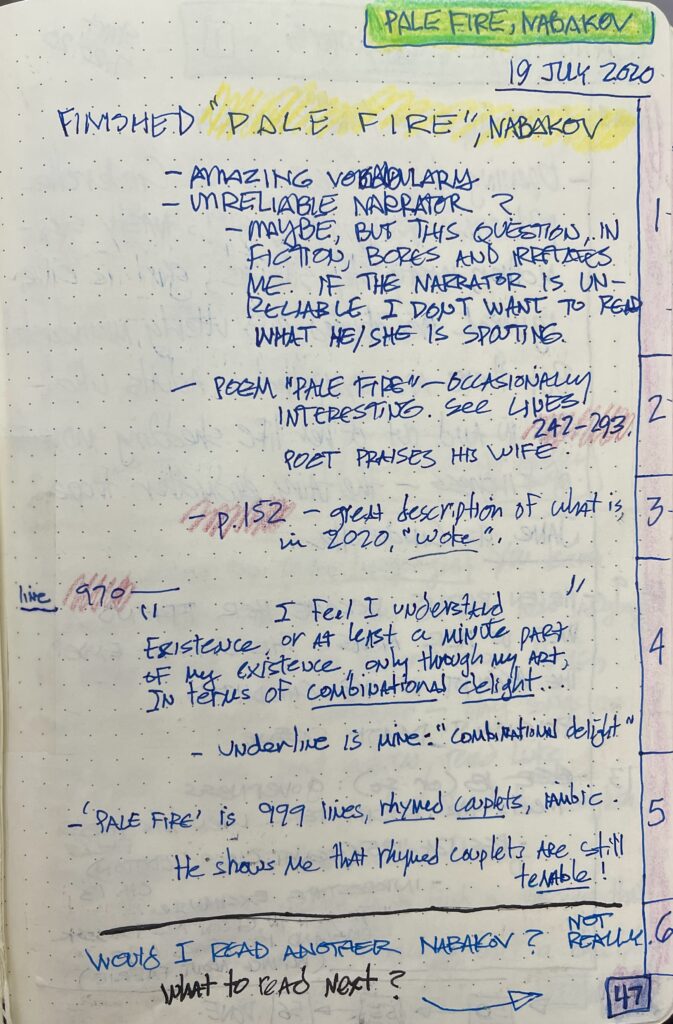 PALE FIRE, NABAKOV
19 JULY 2020
FINISHED "PALE FIRE", NABAKOV
- AMAZING VOCABULARY
- UNRELIABLE NARRATOR?
- MAYBE, BUT THIS QUESTION, IN
FICTION, BORES AND IRRITATES
ME. IF THE NARRATOR IS UN-
RELIABLE I DON'T WANT TO READ
WHAT HE/SHE IS SPOUTING.
1
- POEM "PALE FIRE" - OCCASIONALLY
INTERESTING. SEE LINES
242-293.
POET PRAISES HIS WIFE.
2
- p.152 - great description of what is,
in 2020, "woke".
3
line 970 -
" I feel I understand "
Existence, or at least a minute part
of my existence, only through my art,
In terms of combinational delight...
4
- underline is mine: "combinational delight"
- 'PALE FIRE' is 999 lines, rhymed couplets, iambic.
5
He shows me that rhymed couplets are still
tenable!
WOULD I READ ANOTHER NABAKOV? NOT
REALLY.
6
What to read next?
47